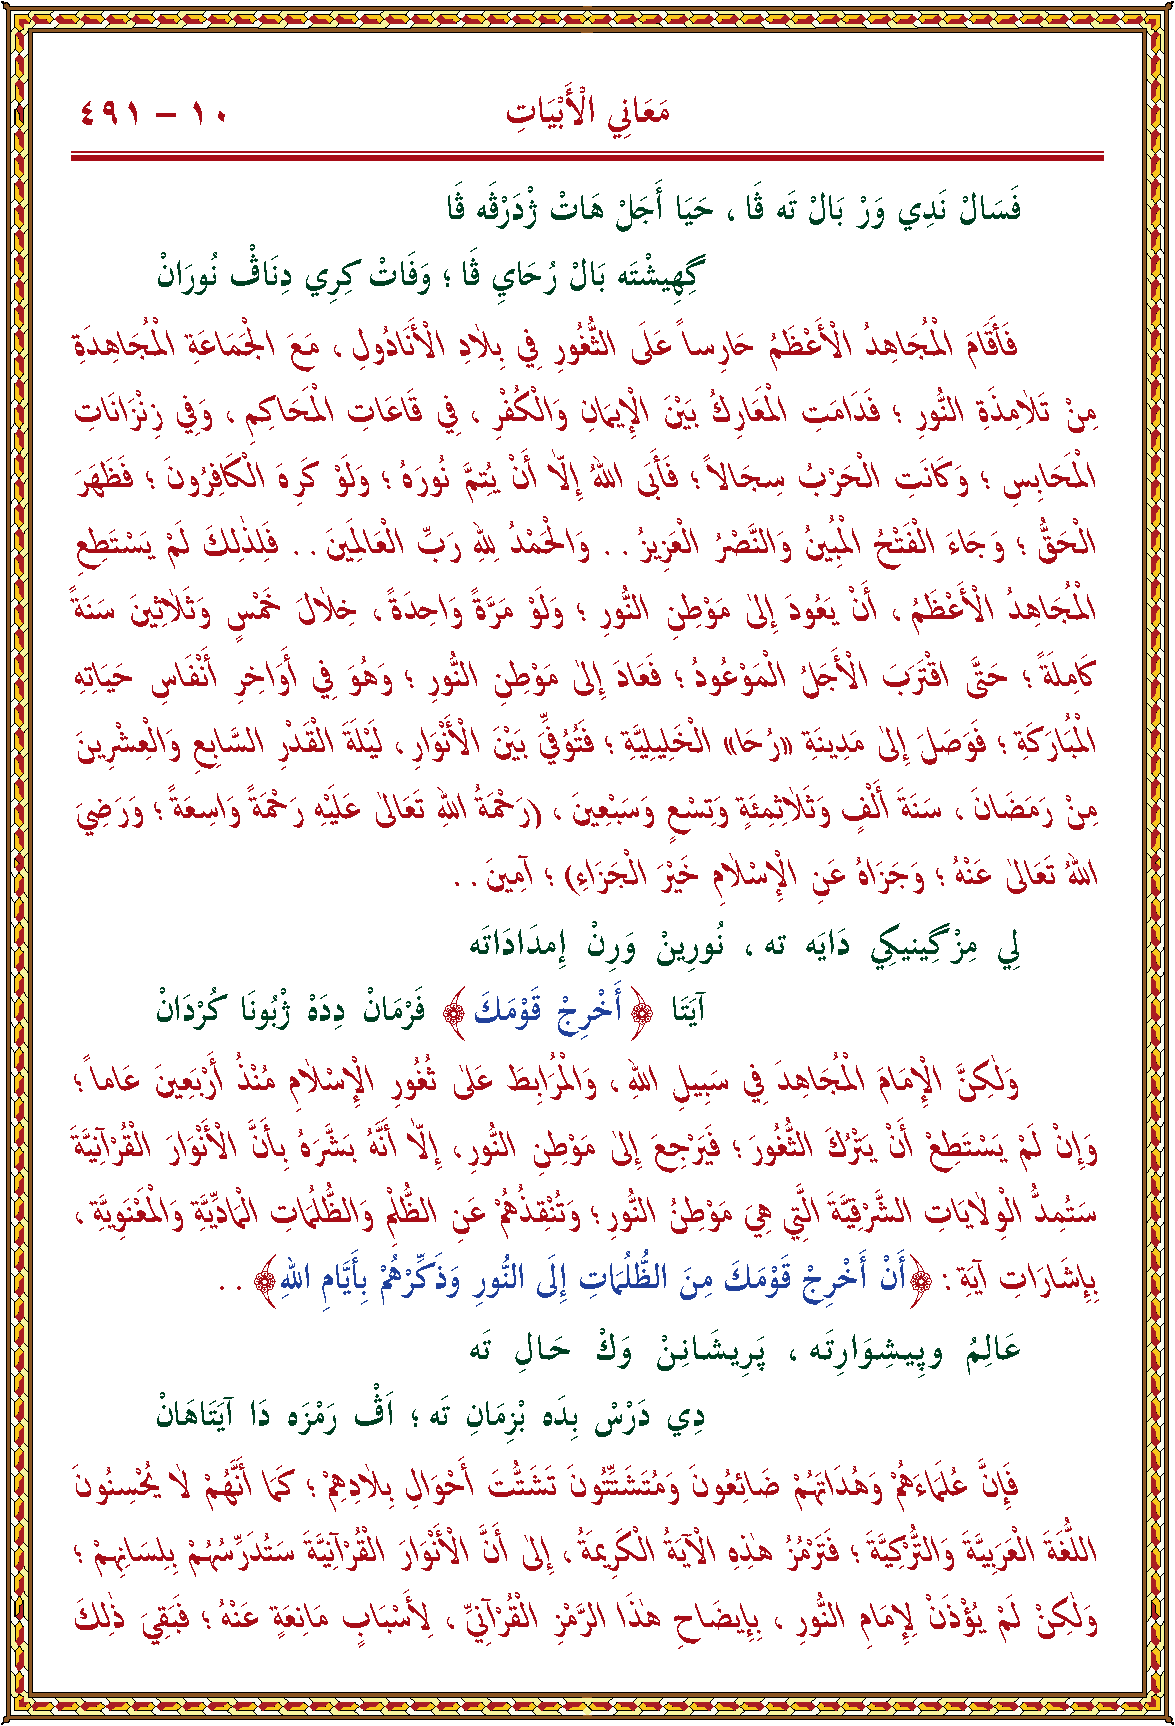 مَعَانِي الْأَبْيَاتِ ١٠ – ٤٩١
فَسَالْ نَدِي وَرْ بَالْ تَه ڤَا ، حَيَا أَجَلْ هَاتْ ژْدَرْڤَه ڤَا
گِهِيشْتَه بَالْ رُحَايِ ڤَا ؛ وَفَاتْ كِرِي دِنَاڤْ نُورَانْ
فَأَقَامَ الْمُجَاهِدُ الْأَعْظَمُ حَارِساً عَلَى الثُّغُورِ فِي بِلَادِ الْأَنَادُولِ ، مَعَ الْجَمَاعَةِ الْمُجَاهِدَةِ
مِنْ تَلَامِذَةِ النُّورِ ؛ فَدَامَتِ الْمَعَارِكُ بَيْنَ الْإِيمَانِ وَالْكُفْرِ ، فِي قَاعَاتِ الْمَحَاكِمِ ، وَفِي زِنْزَانَاتِ
الْمَحَابِسِ ؛ وَكَانَتِ الْحَرْبُ سِجَالاً ؛ فَأَبَى اللهُ إِلَّا أَنْ يُتِمَّ نُورَهُ ؛ وَلَوْ كَرِهَ الْكَافِرُونَ ؛ فَظَهَرَ
الْحَقُّ ؛ وَجَاءَ الْفَتْحُ الْمُبِينُ وَالنَّصْرُ الْعَزِيزُ . . وَالْحَمْدُ لِلهِ رَبِّ الْعَالَمِينَ . . فَلِذٰلِكَ لَمْ يَسْتَطِعِ
الْمُجَاهِدُ الْأَعْظَمُ ، أَنْ يَعُودَ إِلىٰ مَوْطِنِ النُّورِ ؛ وَلَوْ مَرَّةً وَاحِدَةً ، خِلَالَ خَمْسٍ وَثَلَاثِينَ سَنَةً
كَامِلَةً ؛ حَتَّى اقْتَرَبَ الْأَجَلُ الْمَوْعُودُ ؛ فَعَادَ إِلىٰ مَوْطِنِ النُّورِ ؛ وَهُوَ فِي أَوَاخِرِ أَنْفَاسِ حَيَاتِهِ
الْمُبَارَكَةِ ؛ فَوَصَلَ إِلىٰ مَدِينَةِ «رُحَا» الْخَلِيلِيَّةِ ؛ فَتُوُفِّيَ بَيْنَ الْأَنْوَارِ ، لَيْلَةَ الْقَدْرِ السَّابِعِ وَالْعِشْرِينَ
مِنْ رَمَضَانَ ، سَنَةَ أَلْفٍ وَثَلَاثِمِئَةٍ وَتِسْعٍ وَسَبْعِينَ ، (رَحْمَةُ اللهِ تَعَالىٰ عَلَيْهِ رَحْمَةً وَاسِعَةً ؛ وَرَضِيَ
اللهُ تَعَالىٰ عَنْهُ ؛ وَجَزَاهُ عَنِ الْإِسْلَامِ خَيْرَ الْجَزَاءِ) ؛ آمِينَ . .
لِي مِزْگِينِيكِي دَايَه ته ، نُورِينْ وَرِنْ إِمدَادَاتَه
آيَتَا ﴿أَخْرِجْ قَوْمَكَ﴾ فَرْمَانْ دِدَهْ ژْبُونَا كُرْدَانْ
وَلٰكِنَّ الْإِمَامَ الْمُجَاهِدَ فِي سَبِيلِ اللهِ ، وَالْمُرَابِطَ عَلىٰ ثُغُورِ الْإِسْلَامِ مُنْذُ أَرْبَعِينَ عَاماً ؛
وَإِنْ لَمْ يَسْتَطِعْ أَنْ يَتْرُكَ الثُّغُورَ ؛ فَيَرْجِعَ إِلىٰ مَوْطِنِ النُّورِ ، إِلَّا أَنَّهُ بَشَّرَهُ بِأَنَّ الْأَنْوَارَ الْقُرْآنِيَّةَ
سَتُمِدُّ الْوِلَايَاتِ الشَّرْقِيَّةَ الَّتِي هِيَ مَوْطِنُ النُّورِ ؛ وَتُنْقِذُهُمْ عَنِ الظُّلْمِ وَالظُّلُمَاتِ الْمَادِّيَّةِ وَالْمَعْنَوِيَّةِ ،
بِإِشَارَاتِ آيَةِ : ﴿أَنْ أَخْرِجْ قَوْمَكَ مِنَ الظُّلُمَاتِ إِلَى النُّورِ وَذَكِّرْهُمْ بِأَيَّامِ اللهِ﴾ . .
عَالِمُ وپِيشِوَارِتَه ، پَرِيشَانِنْ وَكْ حَالِ تَه
دِي دَرْسْ بِدَه بْزِمَانِ تَه ؛ اَڤْ رَمْزَه دَا آيَتَاهَانْ
فَإِنَّ عُلَمَاءَهُمْ وَهُدَاتَهُمْ ضَائِعُونَ وَمُتَشَتِّتُونَ تَشَتُّتَ أَحْوَالِ بِلَادِهِمْ ؛ كَمَا أَنَّهُمْ لَا يُحْسِنُونَ
اللُّغَةَ الْعَرَبِيَّةَ وَالتُّرْكِيَّةَ ؛ فَتَرْمُزُ هٰذِهِ الْآيَةُ الْكَرِيمَةُ ، إِلىٰ أَنَّ الْأَنْوَارَ الْقُرْآنِيَّةَ سَتُدَرِّسُهُمْ بِلِسَانِهِمْ ؛
وَلٰكِنْ لَمْ يُؤْذَنْ لِإِمَامِ النُّورِ ، بِإِيضَاحِ هٰذَا الرَّمْزِ الْقُرْآنِيِّ ، لِأَسْبَابٍ مَانِعَةٍ عَنْهُ ؛ فَبَقِيَ ذٰلِكَ